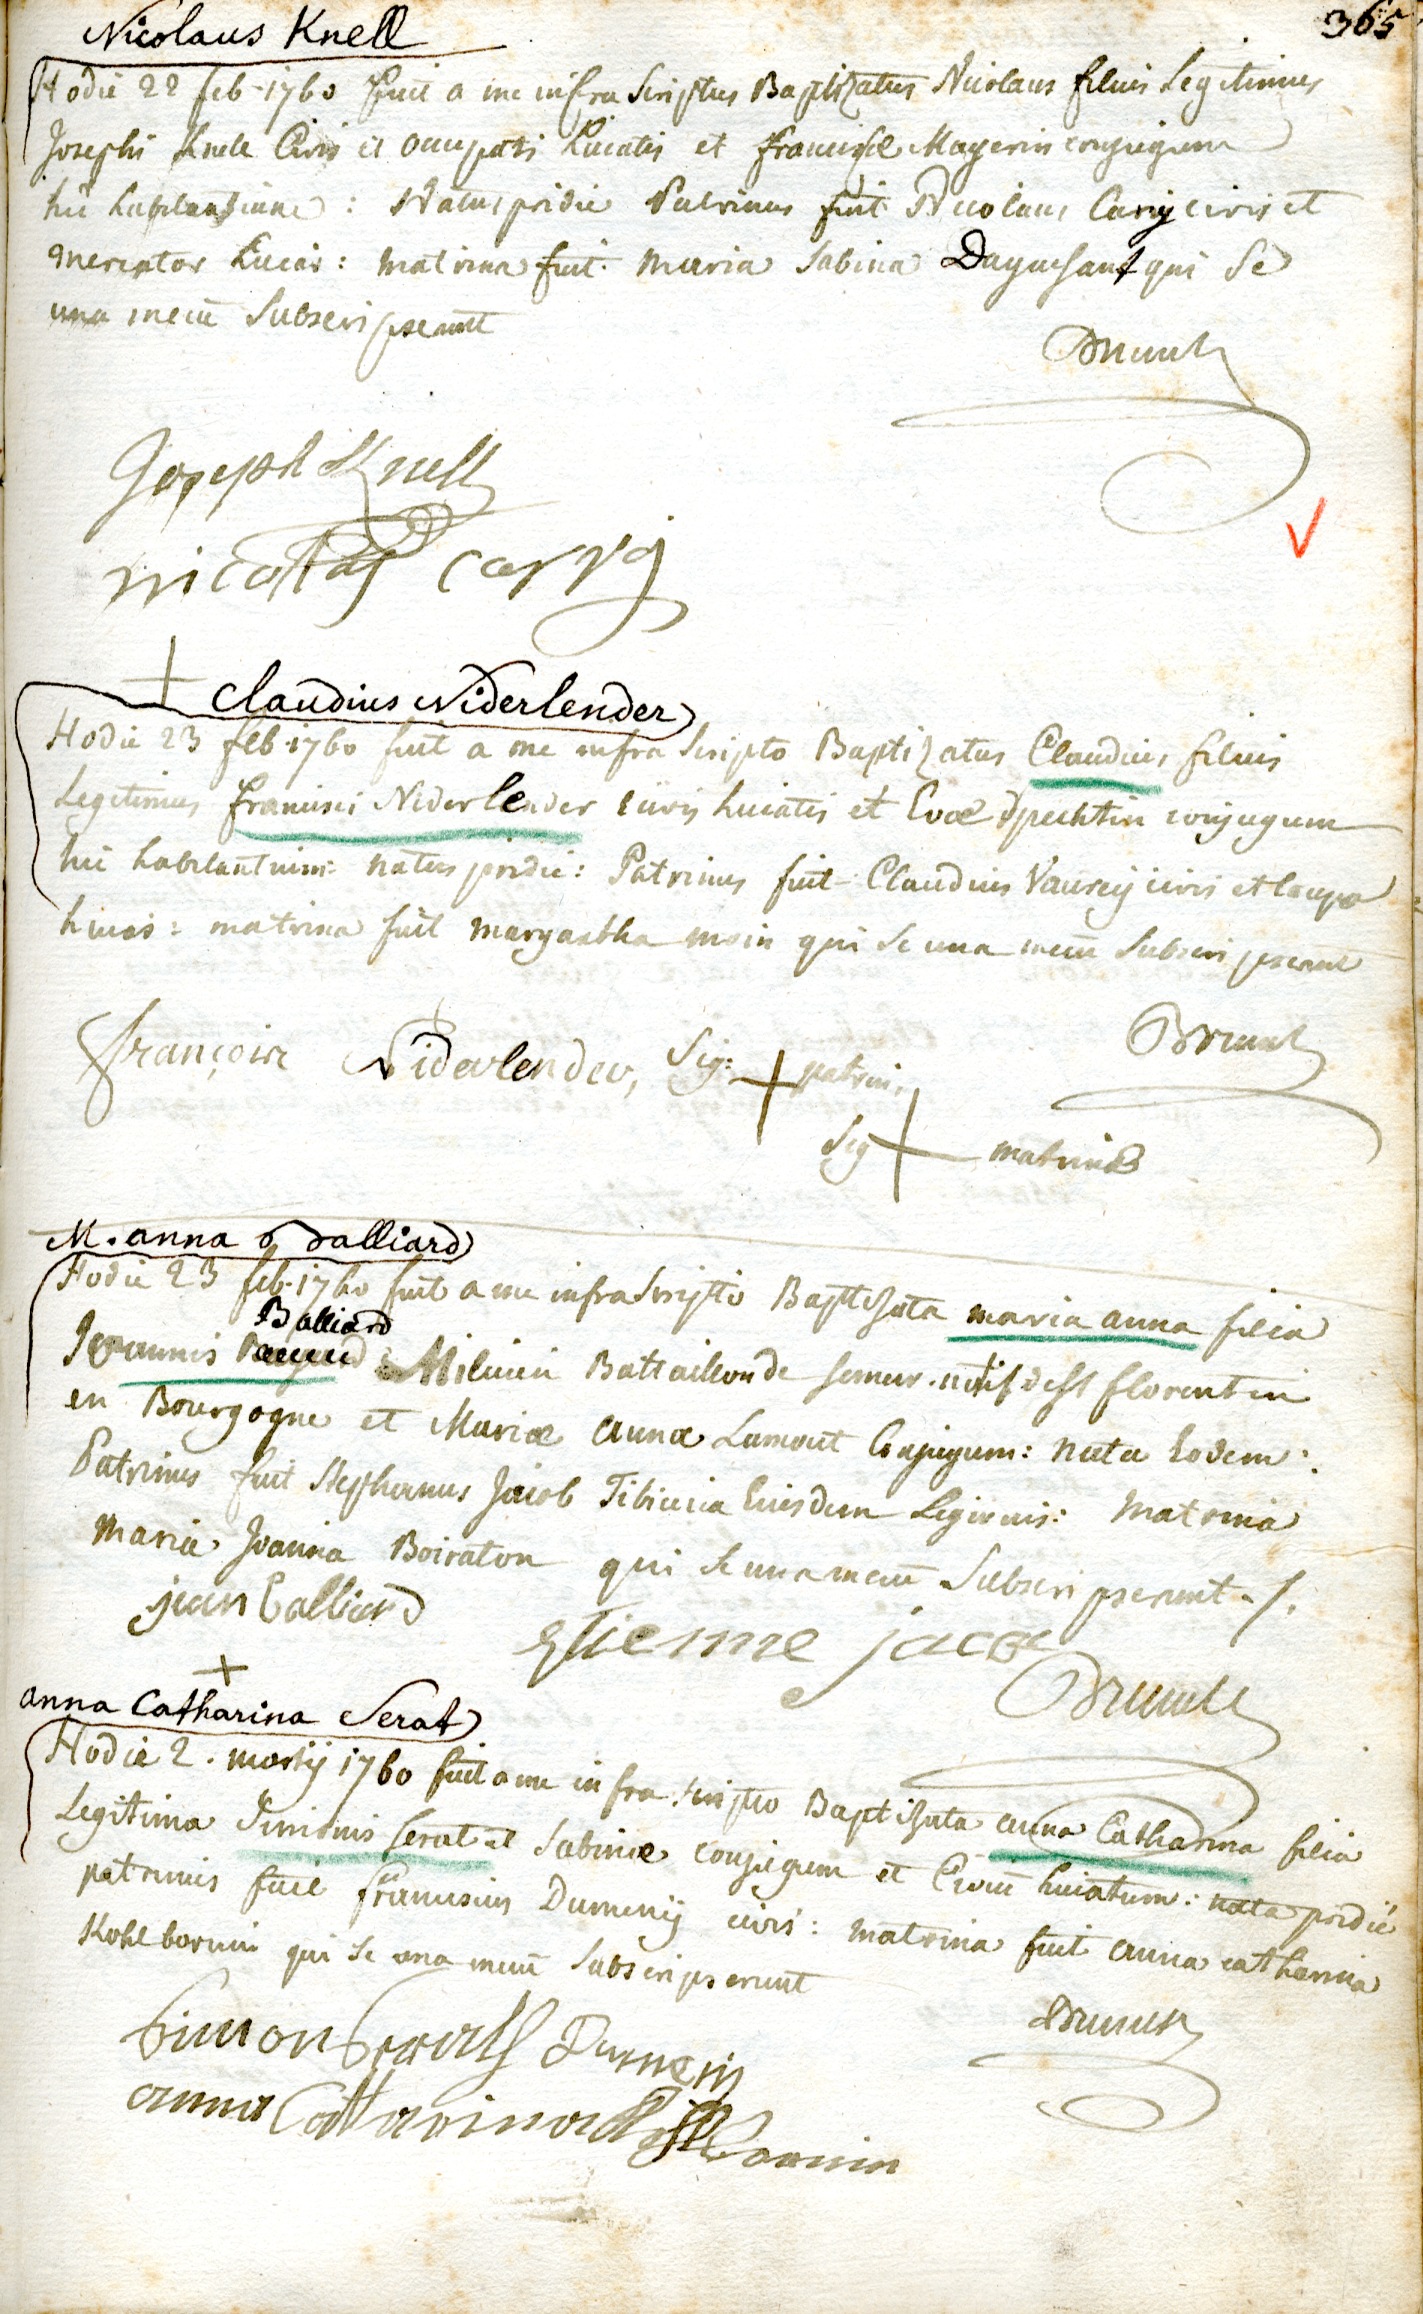 365
Nicolaus Knell
Hodie 22 feb. 1760 fuit a me infra Scriptus Baptizatus Nicolaus filius Legitimus
Josephi Knele Civis et huiatis et franciscæ Mayerin conjugum
hic habitantium: Natus pridie Patrinus fuit Nicolaus Cariy civis et
mercator huias: matrina fuit Maria Sabina Daguesant qui se
una mecū Subscripserunt
Brunck
Joseph Knell
nicolas carry
Claudius Niderlender
Hodie 23 feb. 1760 fuit a me infra Scripto Baptizatus Claudius filius
Legitimus francisci Niderlender civis huiatis et Evæ Spechtin conjugum
hic habitantium natus pridie: Patrinus fuit Claudius Vaurcy civis et
huias: matrina fuit margaretha moin qui se una mecū Subscripserunt
Brunck
françois Niderlender, Sig: patrini
Sig matrinæ
M. anna Balliard
Hodie 23 feb. 1760 fuit a me infra Scripto Baptizata maria anna filia
Balliard
Joannis Militis Battaillon de semur. natif de St florentin
en Bourgogne et Mariæ annæ Lamont Conjugum: nata Eodem:
Patrinus fuit Stephanus Jacob Tibicina Eiusdem Legionis: Matrina
Maria Joanna Boiraton qui se una mecū Subscripserunt ./.
jean Balliard
Etienne jacob
Brunck
anna Catharina Serat
Hodie 2. martij 1760 fuit a me infra Scripto Baptizata anna Catharina filia
Legitima Simonis Serat et Sabinæ conjugum et Civiū huiatum: nata pridie
patrinus fuit franciscus Dumenij civis: matrina fuit anna catharina
Kohlbornin qui se una mecū Subscripserunt
Brunck
Simon Serath Dumenij
anna Catharina Kohlbornin